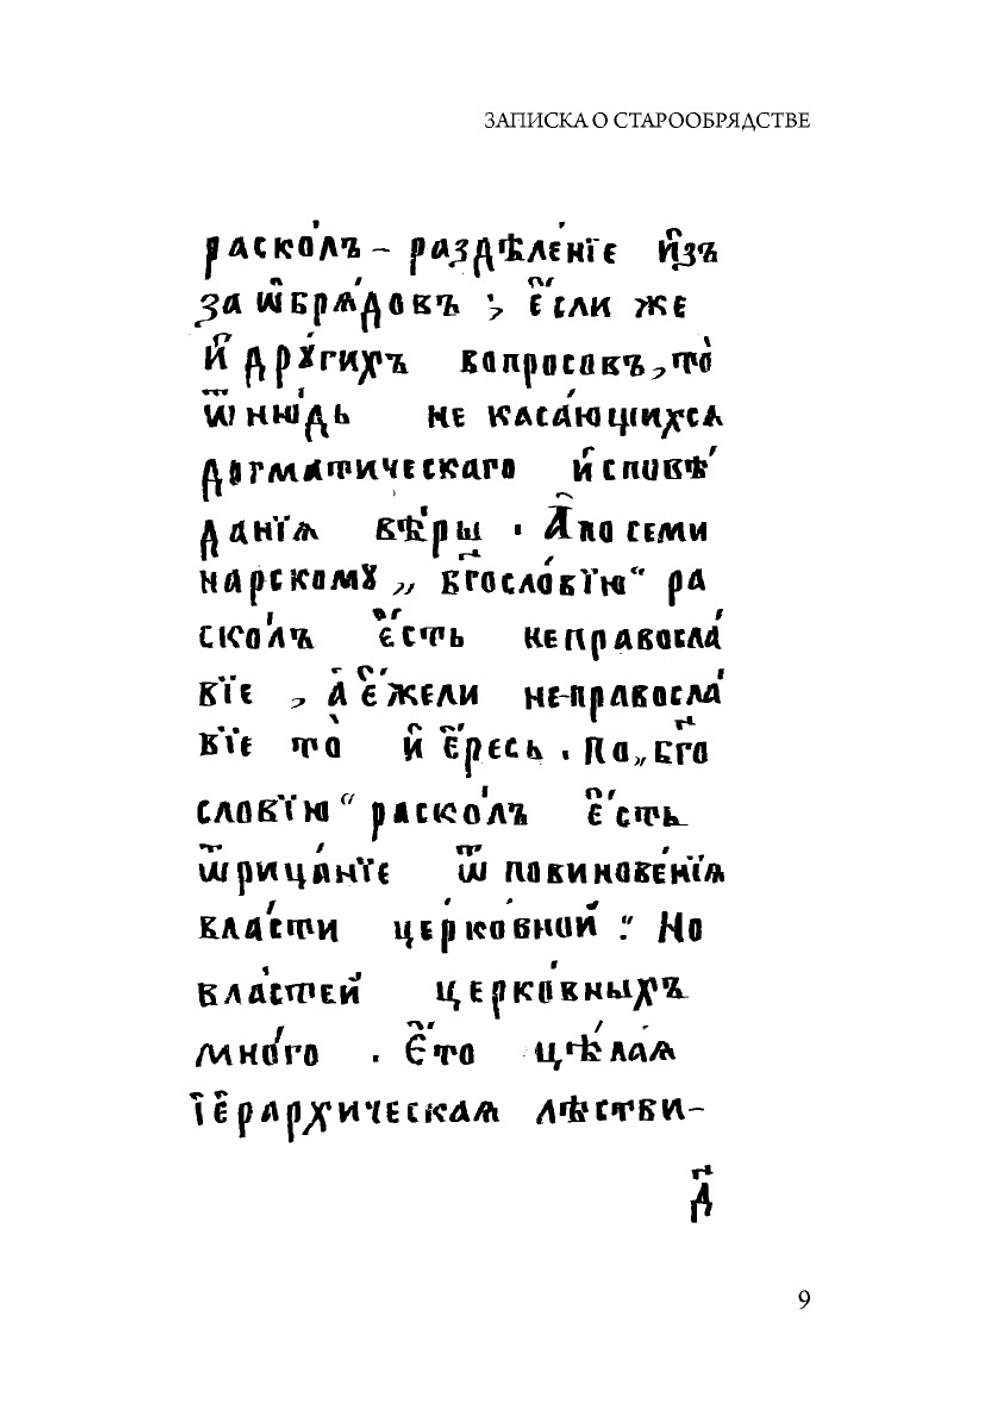 ЗАПИСКА О СТАРООБРЯДСТВЕ
раско́лъ – раздѣле́нїе и҆зъ
за ѡ҆брѧ́довъ ; є҆́сли же
и҆ дрꙋ́гихъ вопросовъ, то̀
ѿню́дь не каса́ющихсѧ
догматическаго и҆сповѣ́
данїѧ вѣ́ры . А҆ по семи
нарскомꙋ „ бг҃осло́вїю“ ра
ско́лъ є҆́сть неправосла́
вїе , а҆ є҆́жели не-правосла́
вїе то̀ и҆ є҆́ресь . По „бг҃о
словїю“ раско́лъ є҆́сть
ѿрица́нїе ѿ повинове́нїѧ
вла́сти це́рко́вной : Но
вла́стей церко́вныхъ
мно́го . Є҆́то цѣ́лаѧ
і҆є҆рархическаѧ лѣстви-
д҃
9